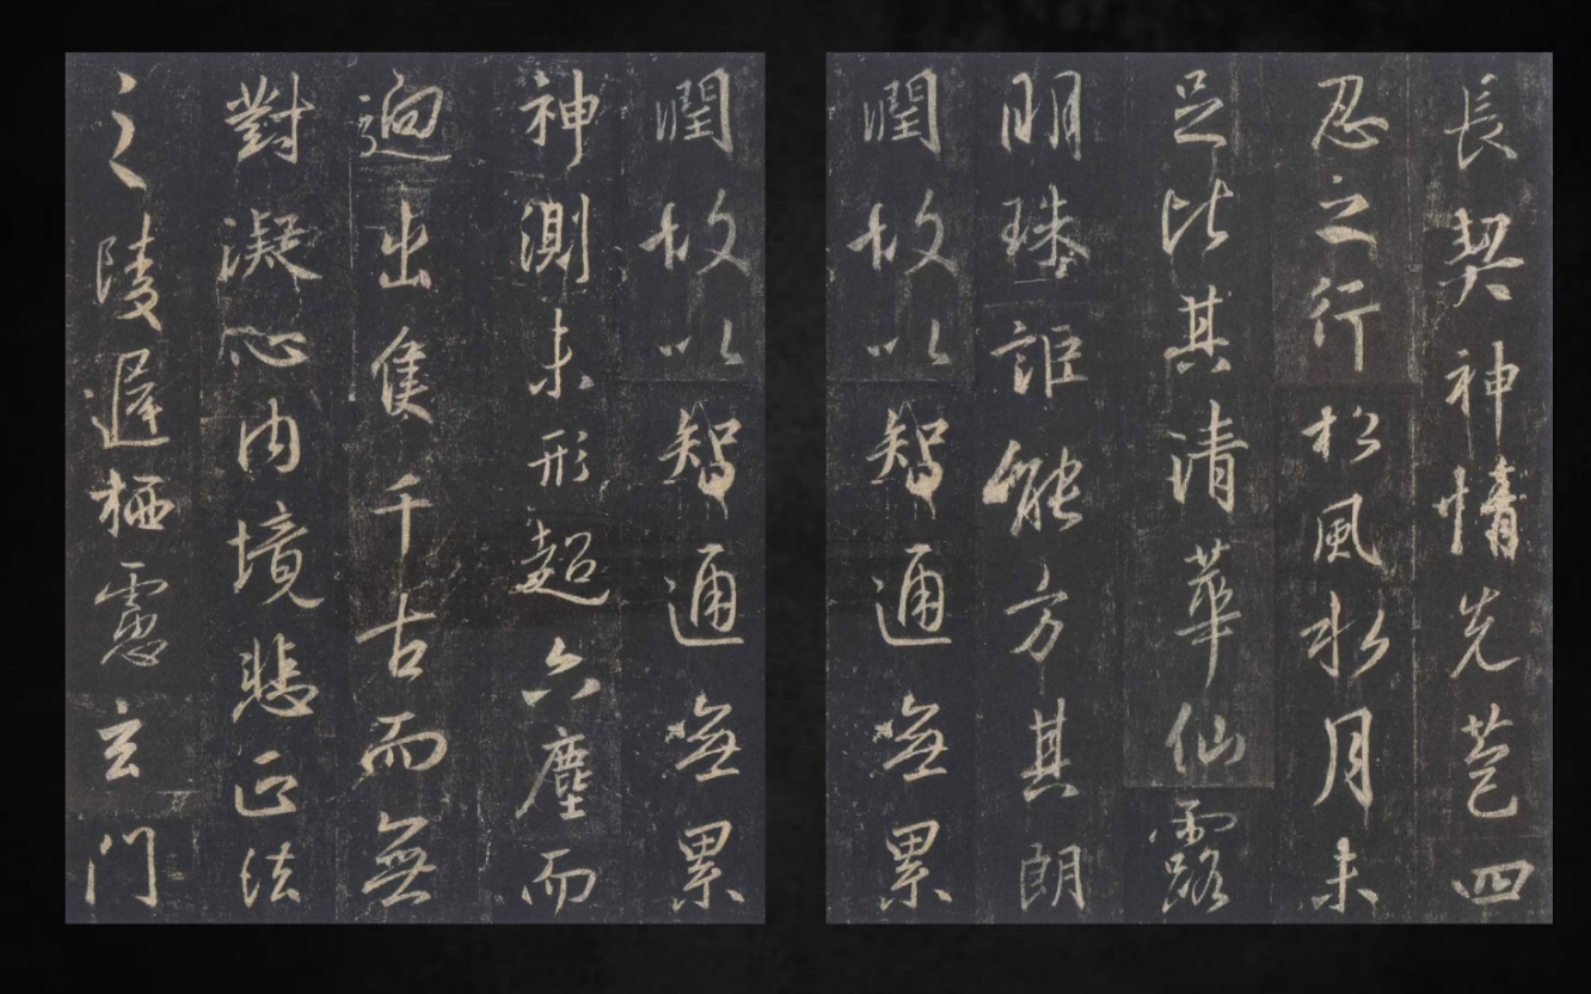 長契神情先苞四
忍之行松風水月未
足比其清華仙露
明珠詎能方其朗
潤故以智通無累
潤故以智通無累
神測未形超六塵而
迥出隻千古而無
對凝心內境悲正法
之陵遲栖慮玄門